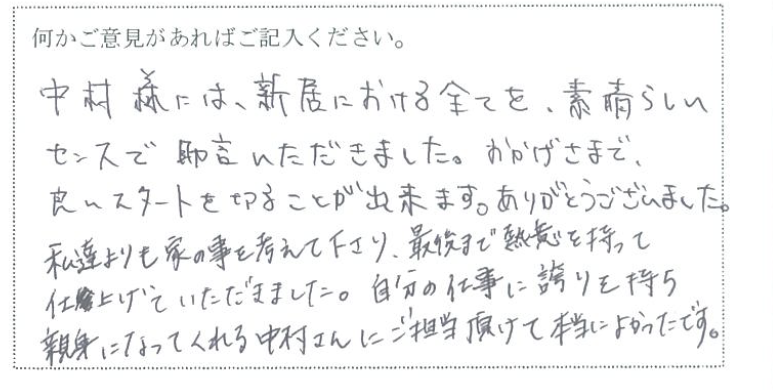 何かご意見があればご記入ください。
中村様には、新居における全てを、素晴らしい
センスで助言いただきました。おかげさまで、
良いスタートを切ることが出来ます。ありがとうございました。
私達よりも家の事を考えて下さり、最後まで熱意を持って
仕上げていただきました。自分の仕事に誇りを持ち
親身になってくれる中村さんにご担当頂けて本当によかったです。